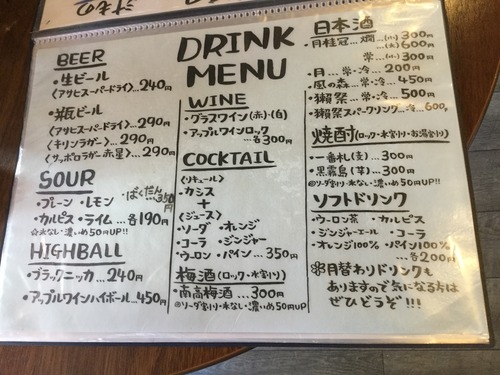 DRINK
MENU
BEER
・生ビール
〈アサヒスーパードライ〉…240円
・瓶ビール
〈アサヒスーパードライ〉…290円
〈キリンラガー〉…290円
〈サッポロラガー赤星〉…290円
SOUR
・プレーン ・レモン ・ばくだん 350円
・カルピス ・ライム …各190円
☆氷なし・濃いめ50円UP!!
HIGHBALL
・ブラックニッカ …240円
・アップルワインハイボール…450円
WINE
・グラスワイン(赤)・(白)
・アップルワインロック
…各300円
COCKTAIL
〈リキュール〉
・カシス
+
〈ジュース〉
・ソーダ ・オレンジ
・コーラ ・ジンジャー
・ウーロン ・パイン …350円
梅酒(ロック・水割り)
・南高梅酒 …300円
※ソーダ割り・氷なし・濃いめ50円UP
日本酒
・月桂冠…燗…(小)300円
(大)600円
常…(小)300円
・月…常・冷…200円
・風の森…常・冷…450円
・獺祭…常・冷…500円
・獺祭スパークリング…冷…600円
焼酎(ロック・水割り・お湯割り)
・一番札(麦)…300円
・黒霧島(芋)…300円
※ソーダ割り・氷なし・濃いめ50円UP!!
ソフトドリンク
・ウーロン茶 ・カルピス
・ジンジャーエール ・コーラ
・オレンジ100% ・パイン100%
…各200円
※月替わりドリンクも
ありますので気になる方は
ぜひどうぞ!!!